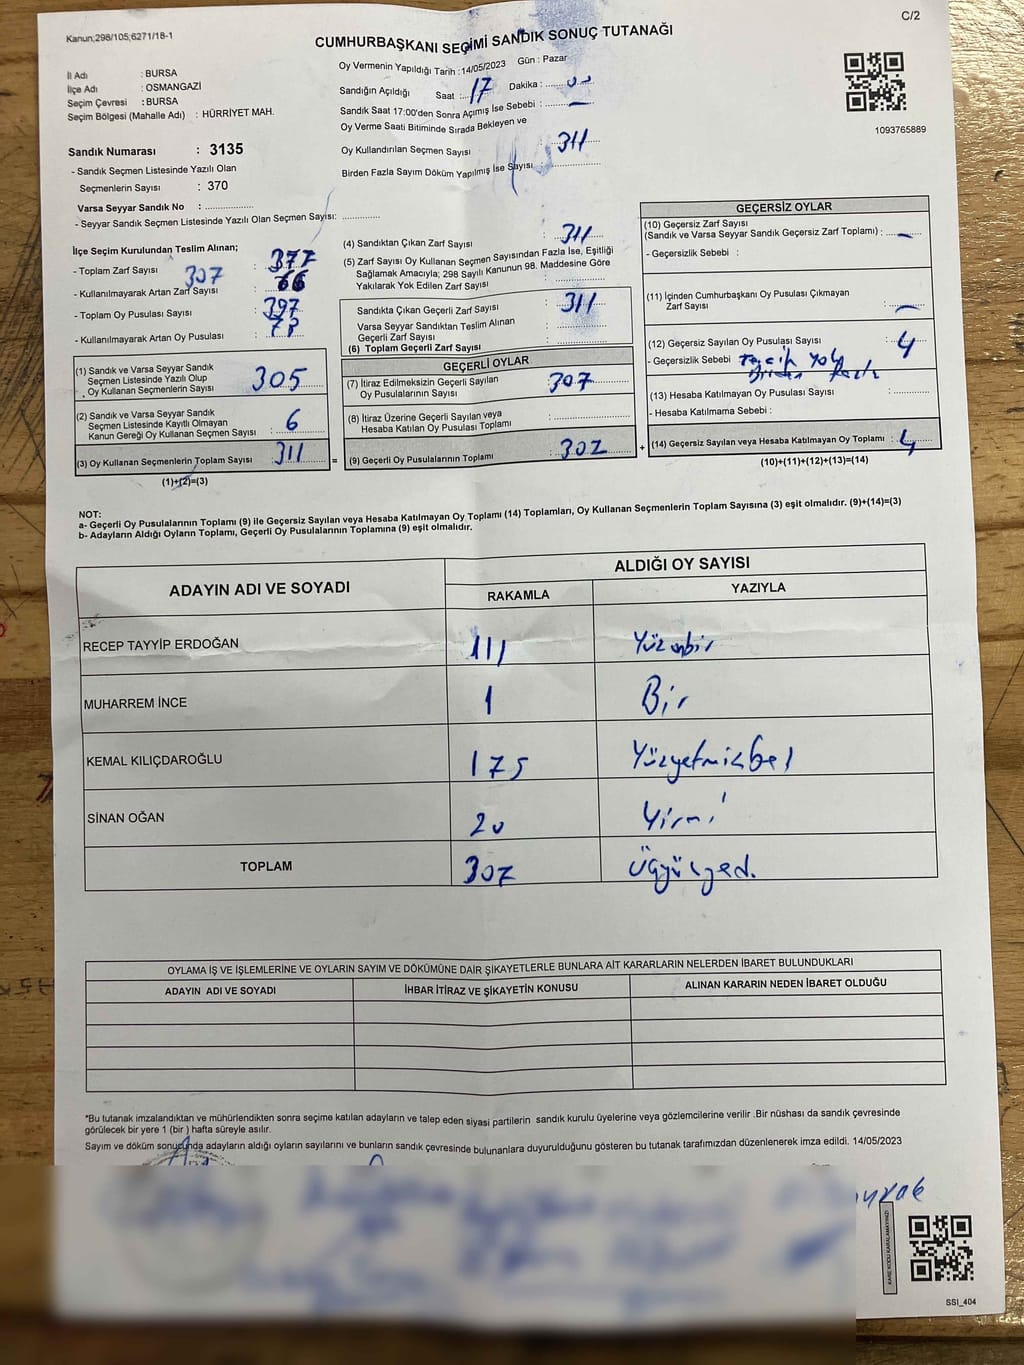 C/2
Kanun;298/105;6271/18-1
CUMHURBAŞKANI SEÇİMİ SANDIK SONUÇ TUTANAĞI
İl Adı : BURSA
İlçe Adı : OSMANGAZİ
Seçim Çevresi : BURSA
Seçim Bölgesi (Mahalle Adı) : HÜRRİYET MAH.
Oy Vermenin Yapıldığı Tarih :14/05/2023 Gün : Pazar
Sandığın Açıldığı Saat : 17 Dakika : 00
Sandık Saat 17:00'den Sonra Açımış İse Sebebi : —
Oy Verme Saati Bitiminde Sırada Bekleyen ve
Oy Kullandırılan Seçmen Sayısı : 311
Birden Fazla Sayım Döküm Yapılmış İse Sayısı :
1093765889
Sandık Numarası : 3135
- Sandık Seçmen Listesinde Yazılı Olan
Seçmenlerin Sayısı : 370
Varsa Seyyar Sandık No :
- Seyyar Sandık Seçmen Listesinde Yazılı Olan Seçmen Sayısı:
İlçe Seçim Kurulundan Teslim Alınan;
- Toplam Zarf Sayısı : 377
307
- Kullanılmayarak Artan Zarf Sayısı : 66
- Toplam Oy Pusulası Sayısı : 397
- Kullanılmayarak Artan Oy Pusulası :
(1) Sandık ve Varsa Seyyar Sandık
Seçmen Listesinde Yazılı Olup
Oy Kullanan Seçmenlerin Sayısı : 305
(2) Sandık ve Varsa Seyyar Sandık
Seçmen Listesinde Kayıtlı Olmayan
Kanun Gereği Oy Kullanan Seçmen Sayısı : 6
(3) Oy Kullanan Seçmenlerin Toplam Sayısı : 311
(1)+(2)=(3)
(4) Sandıktan Çıkan Zarf Sayısı : 311
(5) Zarf Sayısı Oy Kullanan Seçmen Sayısından Fazla İse, Eşitliği
Sağlamak Amacıyla; 298 Sayılı Kanunun 98. Maddesine Göre
Yakılarak Yok Edilen Zarf Sayısı :
Sandıkta Çıkan Geçerli Zarf Sayısı : 311
Varsa Seyyar Sandıktan Teslim Alınan
Geçerli Zarf Sayısı :
(6) Toplam Geçerli Zarf Sayısı :
GEÇERLİ OYLAR
(7) İtiraz Edilmeksizin Geçerli Sayılan
Oy Pusulalarının Sayısı : 307
(8) İtiraz Üzerine Geçerli Sayılan veya
Hesaba Katılan Oy Pusulası Toplamı :
= (9) Geçerli Oy Pusulalarının Toplamı : 307
GEÇERSİZ OYLAR
(10) Geçersiz Zarf Sayısı
(Sandık ve Varsa Seyyar Sandık Geçersiz Zarf Toplamı) : —
- Geçersizlik Sebebi :
(11) İçinden Cumhurbaşkanı Oy Pusulası Çıkmayan
Zarf Sayısı : —
(12) Geçersiz Sayılan Oy Pusulası Sayısı : 4
- Geçersizlik Sebebi :
(13) Hesaba Katılmayan Oy Pusulası Sayısı :
- Hesaba Katılmama Sebebi :
+ (14) Geçersiz Sayılan veya Hesaba Katılmayan Oy Toplamı : 4
(10)+(11)+(12)+(13)=(14)
NOT:
a- Geçerli Oy Pusulalarının Toplamı (9) ile Geçersiz Sayılan veya Hesaba Katılmayan Oy Toplamı (14) Toplamları, Oy Kullanan Seçmenlerin Toplam Sayısına (3) eşit olmalıdır. (9)+(14)=(3)
b- Adayların Aldığı Oyların Toplamı, Geçerli Oy Pusulalarının Toplamına (9) eşit olmalıdır.
ADAYIN ADI VE SOYADI ALDIĞI OY SAYISI
RAKAMLA YAZIYLA
RECEP TAYYİP ERDOĞAN 111 Yüzonbir
MUHARREM İNCE 1 Bir
KEMAL KILIÇDAROĞLU 175 Yüzyetmişbeş
SİNAN OĞAN 20 Yirmi
TOPLAM 307 Üçyüzyedi
OYLAMA İŞ VE İŞLEMLERİNE VE OYLARIN SAYIM VE DÖKÜMÜNE DAİR ŞİKAYETLERLE BUNLARA AİT KARARLARIN NELERDEN İBARET BULUNDUKLARI
ADAYIN ADI VE SOYADI İHBAR İTİRAZ VE ŞİKAYETİN KONUSU ALINAN KARARIN NEDEN İBARET OLDUĞU
*Bu tutanak imzalandıktan ve mühürlendikten sonra seçime katılan adayların ve talep eden siyasi partilerin sandık kurulu üyelerine veya gözlemcilerine verilir .Bir nüshası da sandık çevresinde
görülecek bir yere 1 (bir ) hafta süreyle asılır.
Sayım ve döküm sonucunda adayların aldığı oyların sayılarını ve bunların sandık çevresinde bulunanlara duyurulduğunu gösteren bu tutanak tarafımızdan düzenlenerek imza edildi. 14/05/2023
KARE KODU KARALAMAYINIZ!
SSI_404